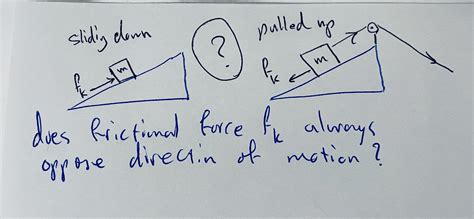 slidig down
?
pulled up
m
fk
m
T
fk
does frictional force fk always
oppose direction of motion?